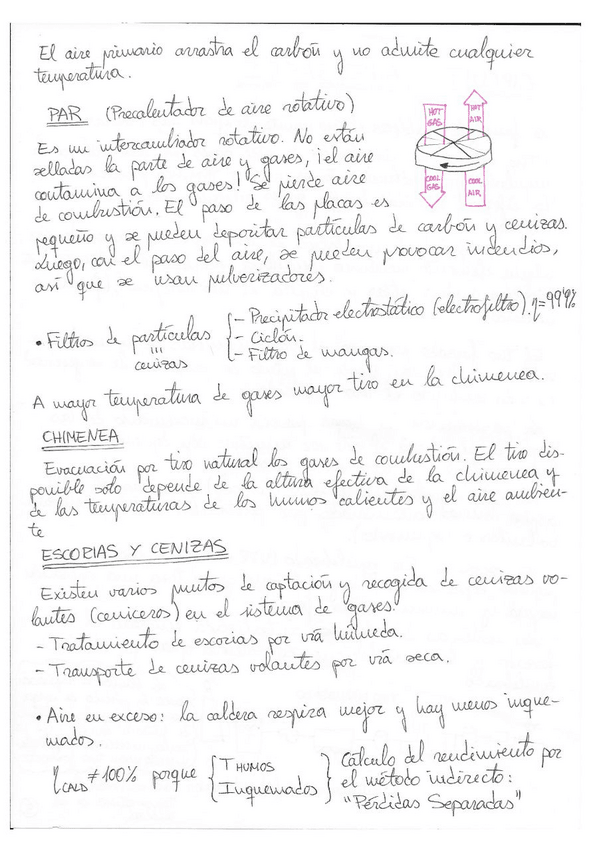 El aire primario arrastra el carbón y no admite cualquier
temperatura.
PAR (Precalentador de aire rotativo)
HOT GAS
HOT AIR
COOL GAS
COOL AIR
Es un intercambiador rotativo. No están
selladas la parte de aire y gases, ¡el aire
contamina a los gases! Se pierde aire
de combustión. El paso de las placas es
pequeño y se pueden depositar partículas de carbón y cenizas.
Luego, con el paso del aire, se pueden provocar incendios,
así que se usan pulverizadores.
• Filtros de partículas
cenizas
- Precipitador electrostático (electrofiltro). η=99'9%
- Ciclón.
- Filtro de mangas.
A mayor temperatura de gases mayor tiro en la chimenea.
CHIMENEA
Evacuación por tiro natural los gases de combustión. El tiro dis-
ponible solo depende de la altura efectiva de la chimenea y
de las temperaturas de los humos calientes y el aire ambien-
te
ESCORIAS Y CENIZAS
Existen varios puntos de captación y recogida de cenizas vo-
lantes (ceniceros) en el sistema de gases.
- Tratamiento de escorias por vía húmeda.
- Transporte de cenizas volantes por vía seca.
• Aire en exceso: la caldera respira mejor y hay menos inque-
mados.
η CALD ≠ 100% porque { T HUMOS
Inquemados }
Cálculo del rendimiento por
el método indirecto:
"Pérdidas Separadas"